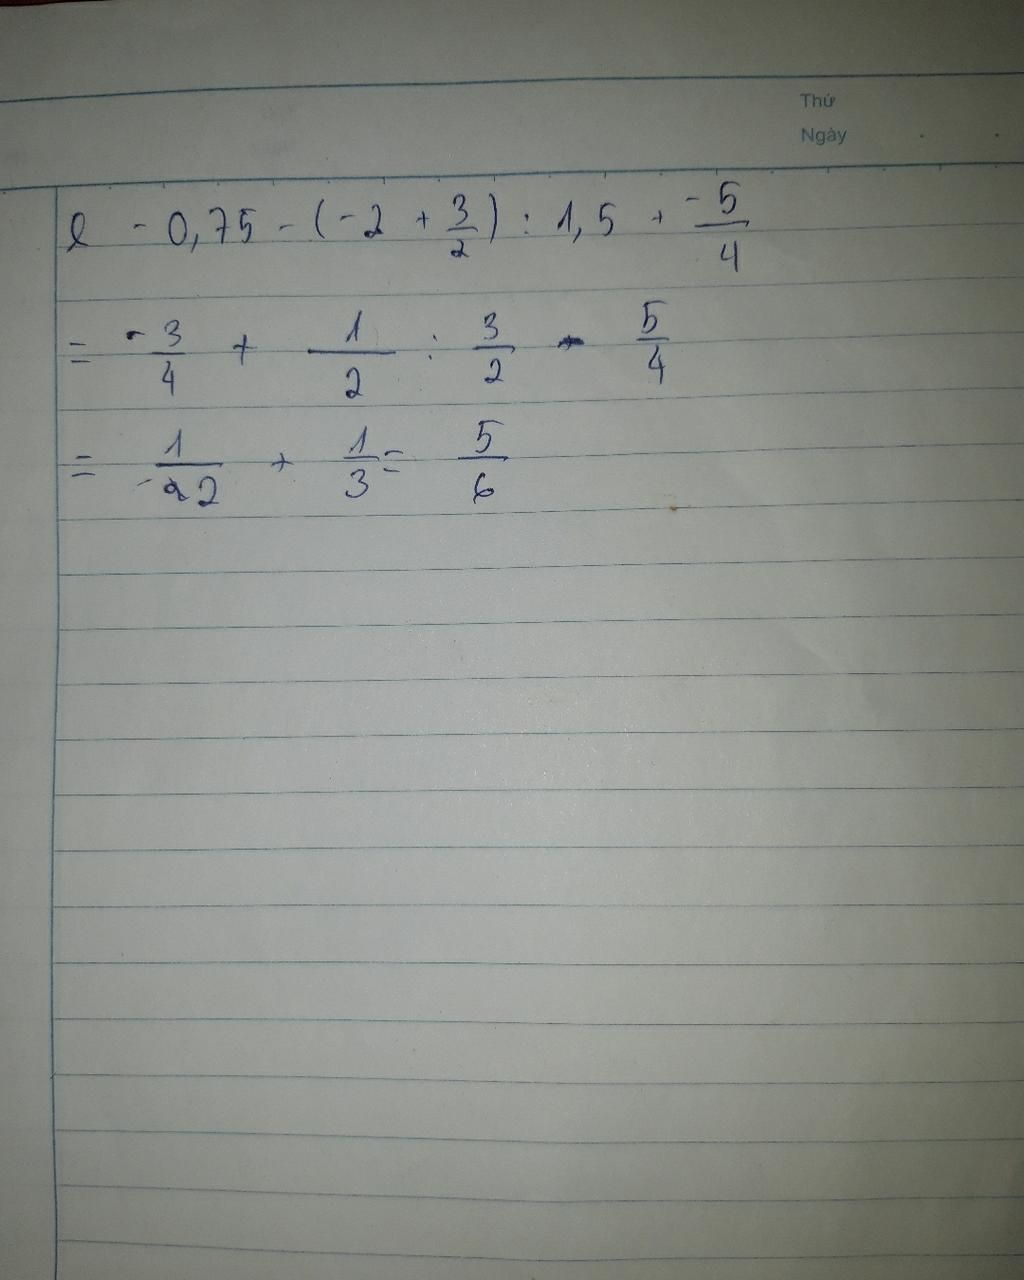 Thứ
Ngày
e - 0,75 - (-2 + 3/2) : 1,5 + -5/4
= -3/4 + 1/2 : 3/2 - 5/4
= 1/-2 + 1/3 = 5/6